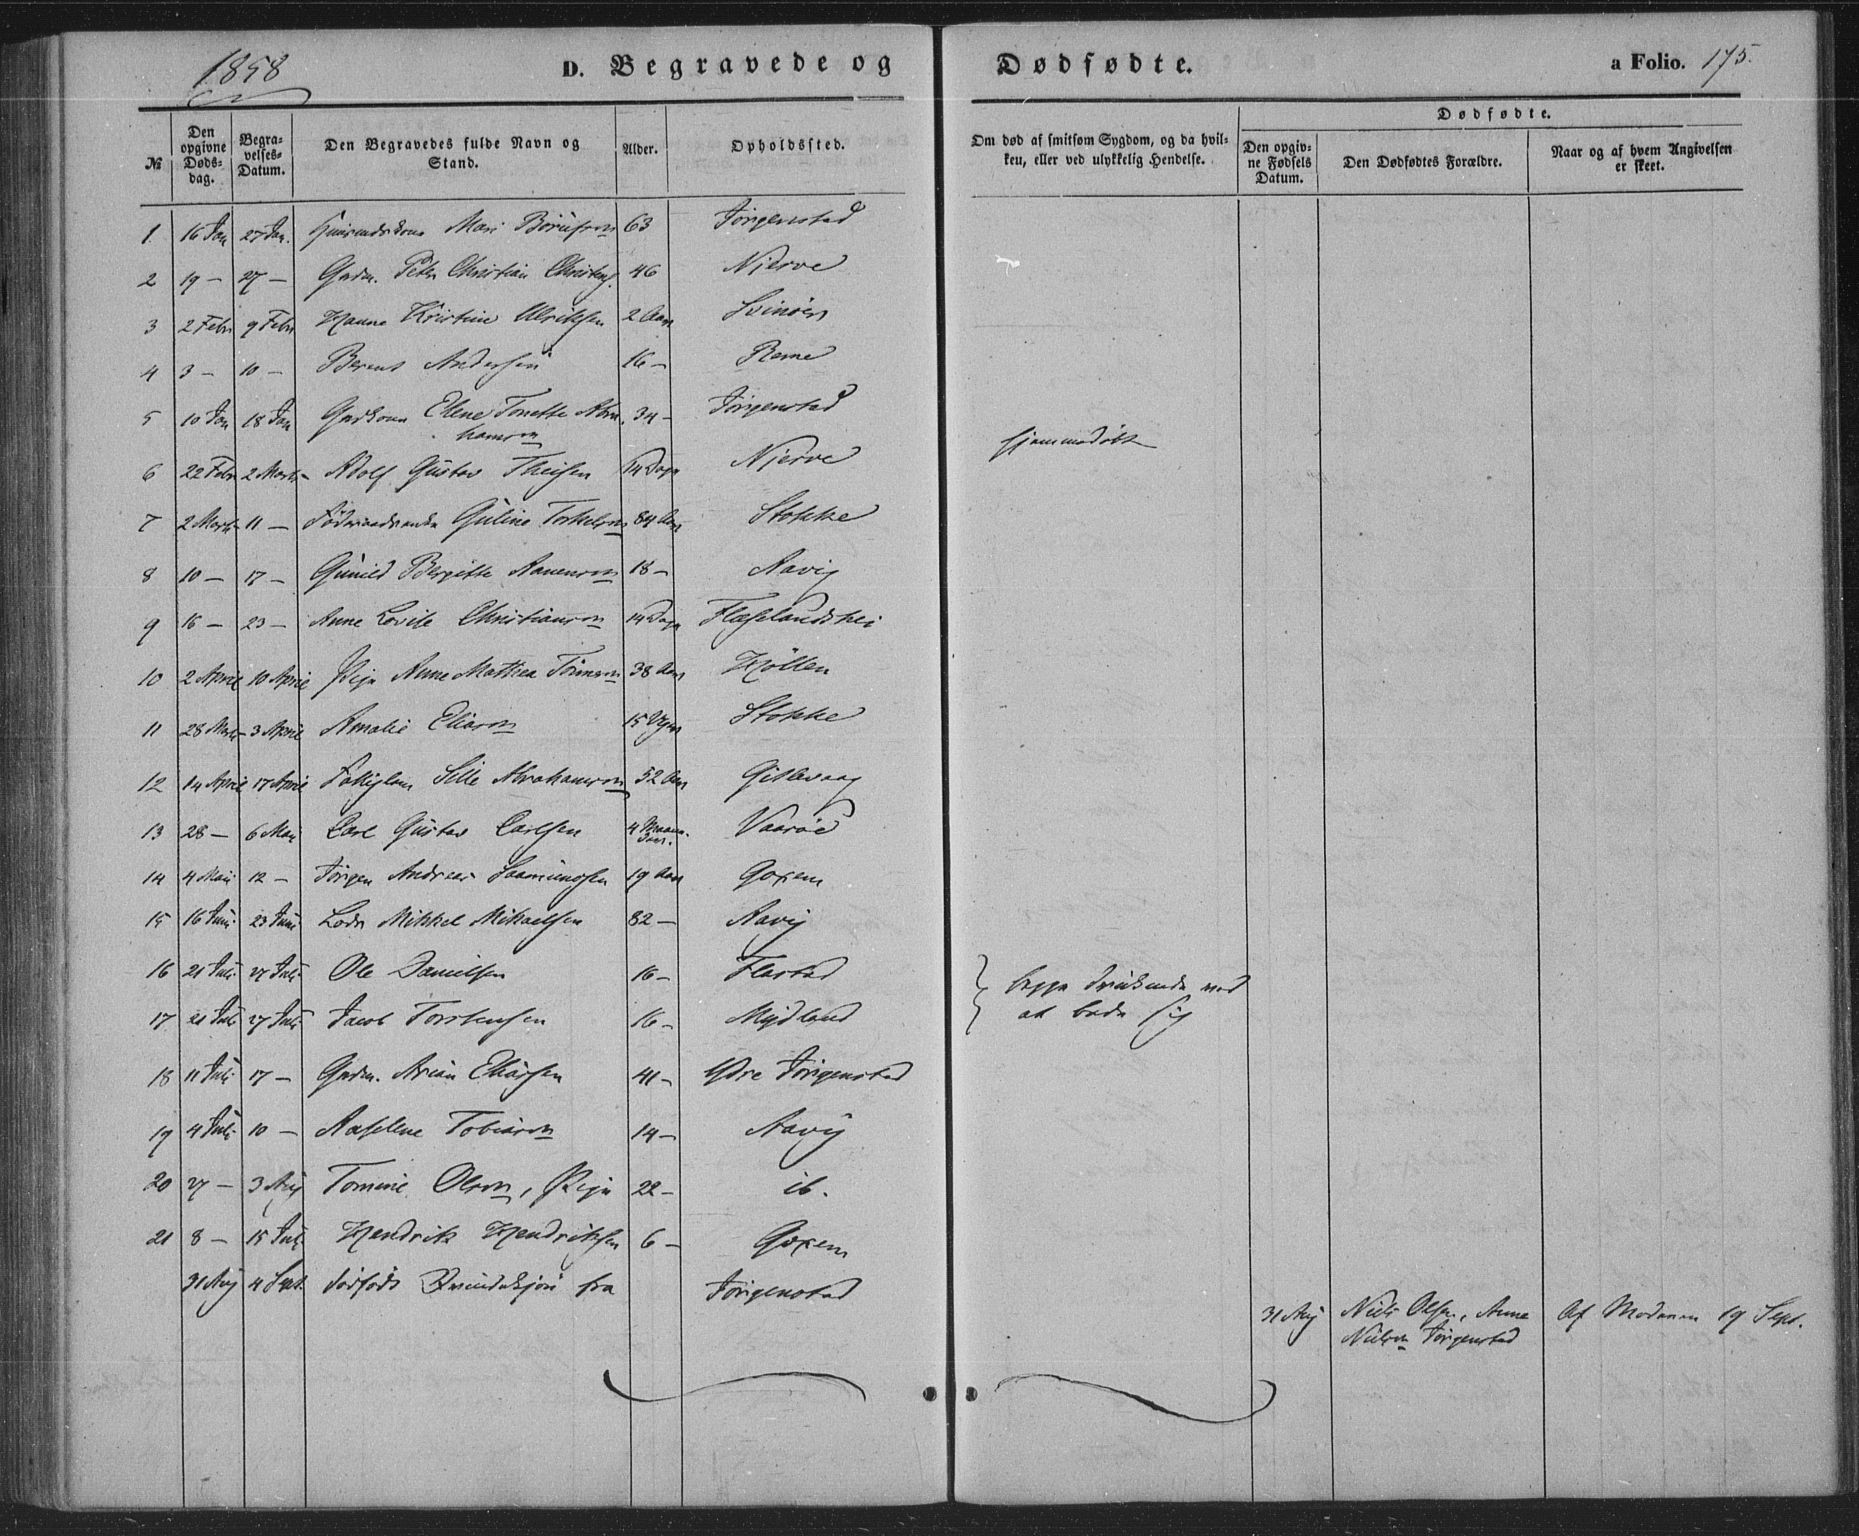 1858
D. Begravede og Dødfødte.
a Folio. 175.
№ | Den opgivne Døds-dag. | Begra-velses-Datum. | Den Begravedes fulde Navn og Stand. | Alder. | Opholdssted. | Om død af smitsom Sygdom, og da hvil-ken, eller ved ulykkelig Hendelse. | Dødfødte.
Den opgiv-ne Fødsels Datum. | Den Dødfødtes Forældre. | Naar og af hvem Angivelsen er skeet.
1. 16 Jan 27 Jan. Mari 63 Jørgenstad
2 19 – 27 – Gndm. Peter Christian Christens. 46 Njerve
3 2 Febr 9 Febr Hanne Kristine Ulriksen 2 Aar Svinöer
4 3 – 10 – Berent Andersen 16 – Reme
5 10 Jan 18 Jan Elene Tonette Abra- 34 – Jørgenstad
hamsen
6 22 Febr 2 Marts Adolf Gustav Theisen 14 Dage Njerve hjemmedøbt
7 2 Marts 11 – Guline Torkelsen 84 Aar Stokke
8 10 – 17 – Gunild Bergitte Aanensen 18 – Aavig
9 16 – 23 – Anne Lovise Christiansen 14 Dage Flæselandshei
10 2 April 10 April Pige Anne Mathea Tönnesen 38 Aar Höllen
11 28 Marts 3 April Amalie Eliasen 15 Uger Stokke
12 14 April 17 April Sille Abrahamsen 52 Aar Gislevaag
13 28 – 6 Mai Carl Gustav Carlsen 4 Maane- Vaaröe
der.
14 4 Mai 12 – Jörgen Andreas Saamundsen 19 Aar Goxem
15 16 Juni 23 Juni Lods Mikkel Mikaelsen 82 – Aavig
16 21 Juli 27 Juli Ole Danielsen 16 – Flastad } begge druknede ved
17 21 Juli 27 Juli Jacob Torstensen 16 – Mydland at bade sig
18 11 Juli 17 – Gndm. Arian Eliassen 41 – Ydre Jörgenstad
19 4 Juli 10 – Aaselene Tobiasen 14 – Aavig
20 27 – 3 Aug Tomine Olsen, Pige 22 – ib.
21 8 – 15 Juli Hendrik Hendriksen 6 – Goxem
31 Aug 4 Sept. dødfødt Qvindekjön fra Jörgenstad
31 Aug Niels Olsen, Anne Af Moderen 19 Sept.
Nielsen Jörgenstad